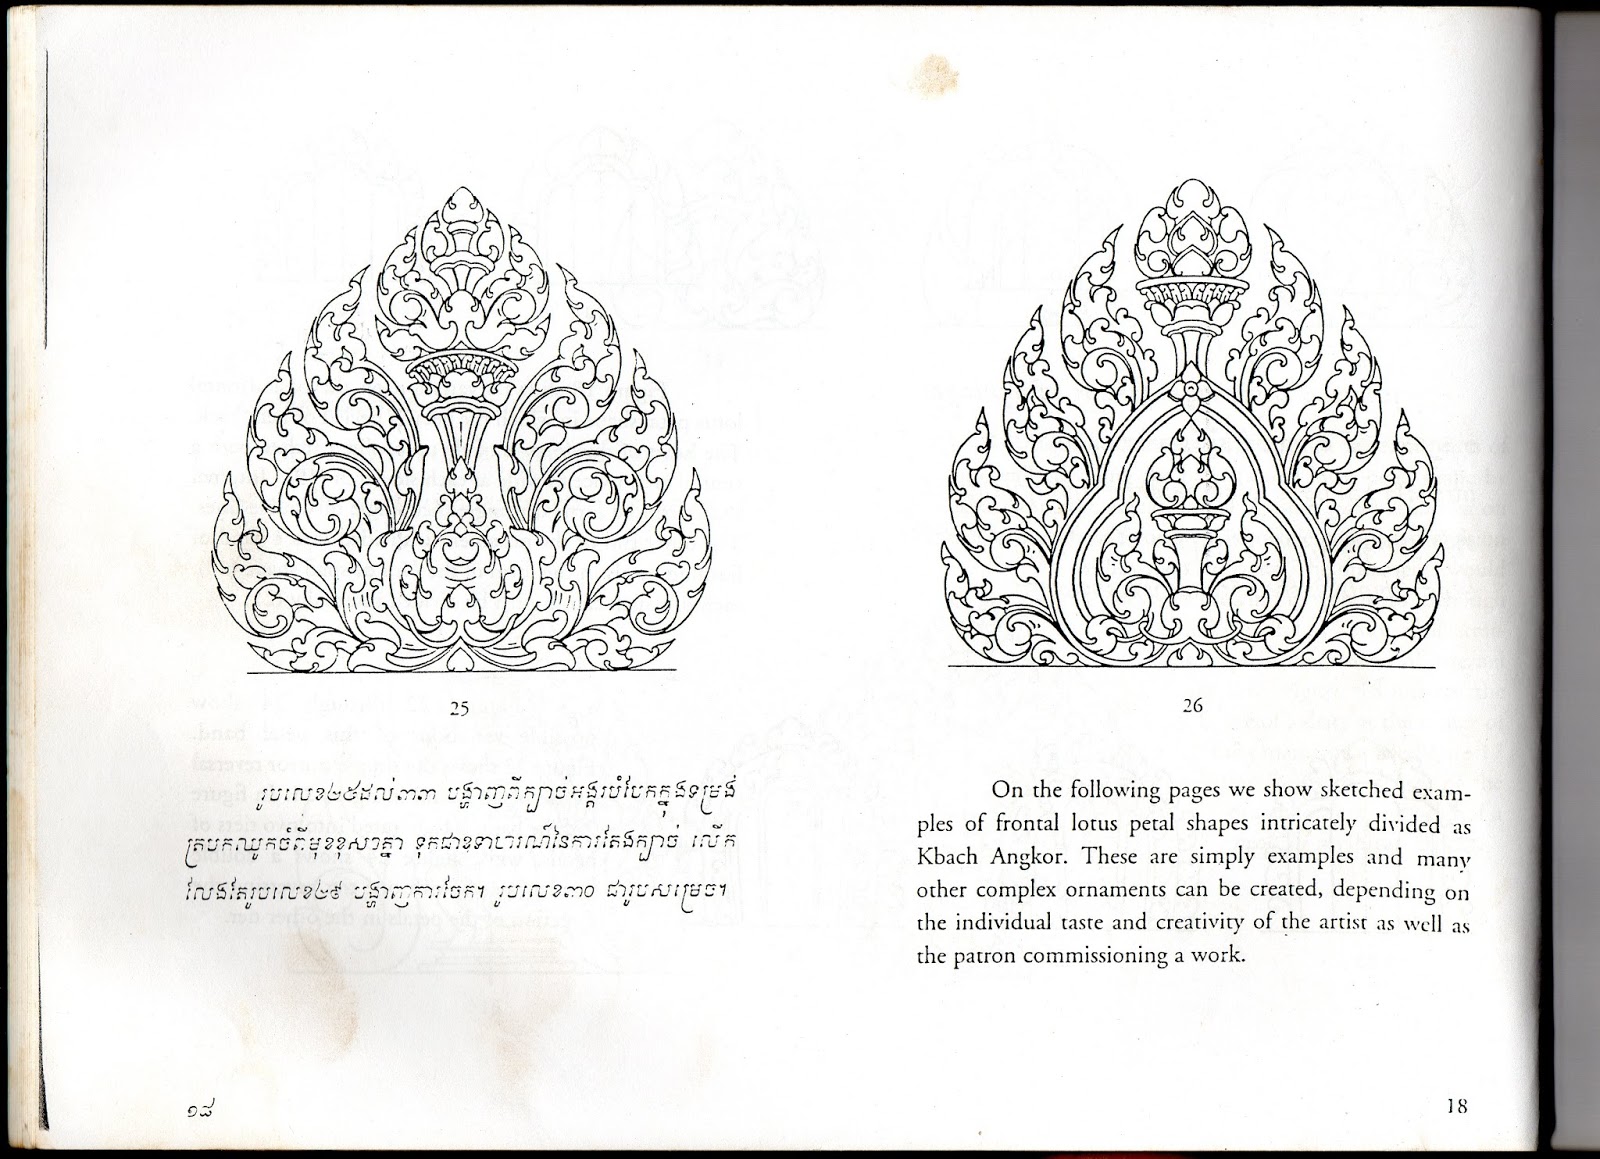 25
26
រូបលេខ២៥ដល់៣៣ បង្ហាញពីក្បាច់អង្គរបំបែកក្នុងទម្រង់
ត្របកឈូកចំពីមុខខុសៗគ្នា ទុកជាឧទាហរណ៍នៃការតែងក្បាច់ លើក
លែងតែរូបលេខ២៩ បង្ហាញការចែក។ រូបលេខ៣០ ជារូបសម្រេច។
On the following pages we show sketched exam-
ples of frontal lotus petal shapes intricately divided as
Kbach Angkor. These are simply examples and many
other complex ornaments can be created, depending on
the individual taste and creativity of the artist as well as
the patron commissioning a work.
១៨
18